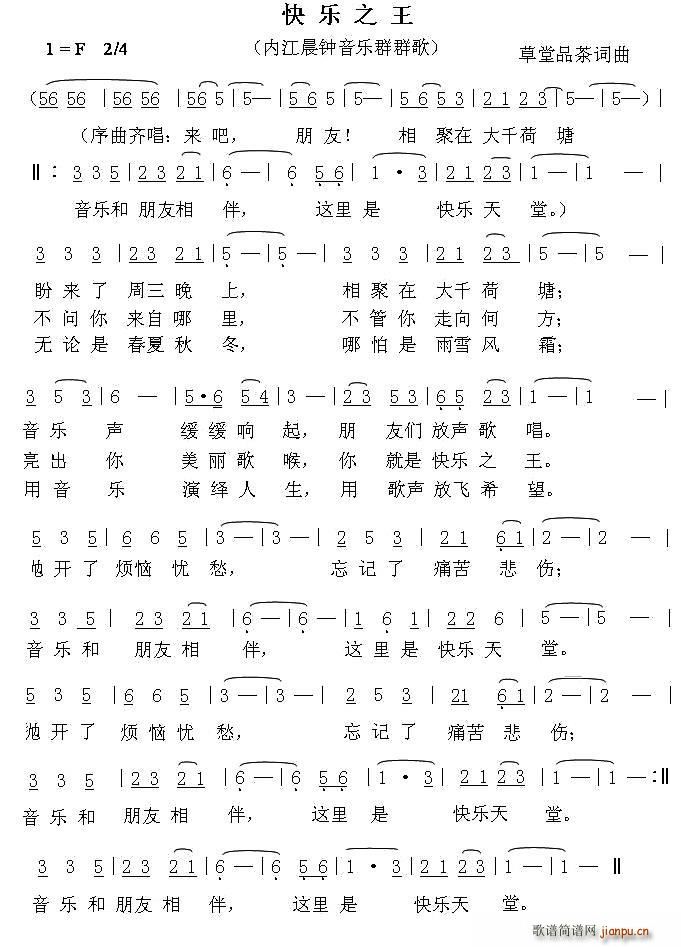 快乐之王
1=F 2/4 （内江晨钟音乐群群歌） 草堂品茶词曲
（56 56 |56 56 |56 5|5—|56 5|6 5 5 3|2 1 2 3|5—|5—）|
（序曲齐唱：来 吧， 朋 友！ 相 聚在 大千荷 塘
‖：3 3 5|2 3 2 1|6 —|6 5 6|1 · 3|2 1 2 3|1 —|1 — |
音乐和 朋友相 伴， 这里 是 快乐 天 堂。）
3 3 3 |2 3 2 1|5 —|5 —|3 3 3|2 1 2 3|5 —|5 — |
盼 来 了 周三 晚 上， 相 聚 在 大千 荷 塘；
不 问 你 来自 哪 里， 不 管 你 走向 何 方；
无 论 是 春夏 秋 冬， 哪 怕 是 雨雪 风 霜；
3 5 3 |6 — |5·6 5 4|3 —|2 3 5 3|6 5 2 3|1 —|1 — |
音 乐 声 缓 缓 响 起， 朋 友们 放声 歌 唱。
亮 出 你 美 丽 歌 喉， 你 就是 快乐 之 王。
用 音 乐 演 绎 人 生， 用 歌声 放飞 希 望。
5 3 5 |6 6 5|3 —|3 —|2 5 3|2 1 6 1|2 —|2 — |
抛 开 了 烦 恼 忧 愁， 忘 记 了 痛苦 悲 伤；
3 3 5|2 3 2 1|6 —|6 —|1 6 1|2 2 6|5 —|5 — |
音 乐 和 朋友 相 伴， 这 里 是 快乐 天 堂。
5 3 5 |6 6 5|3 —|3 —|2 5 3|21 6 1|2 —|2 — |
抛 开 了 烦 恼 忧 愁， 忘 记 了 痛苦 悲 伤；
3 3 5 |2 3 2 1|6 —|6 5 6|1 · 3|2 1 2 3|1 —|1 —:‖
音 乐 和 朋友 相 伴， 这里 是 快乐 天 堂。
3 3 3|2 3 2 1|6 —|6 5 6|1 · 3|2 1 2 3|1 —|1 — ‖
音 乐 和 朋友 相 伴， 这里 是 快乐天 堂。
歌谱简谱网
jianpu.cn